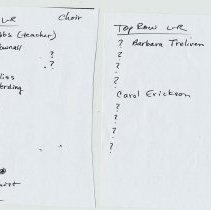 LR Choir
bbs (teacher)
wnall
?
?
liss
erding
Top Row L-R
? Barbara Treliven
?
?
?
Carol Erickson
?
?
?
?